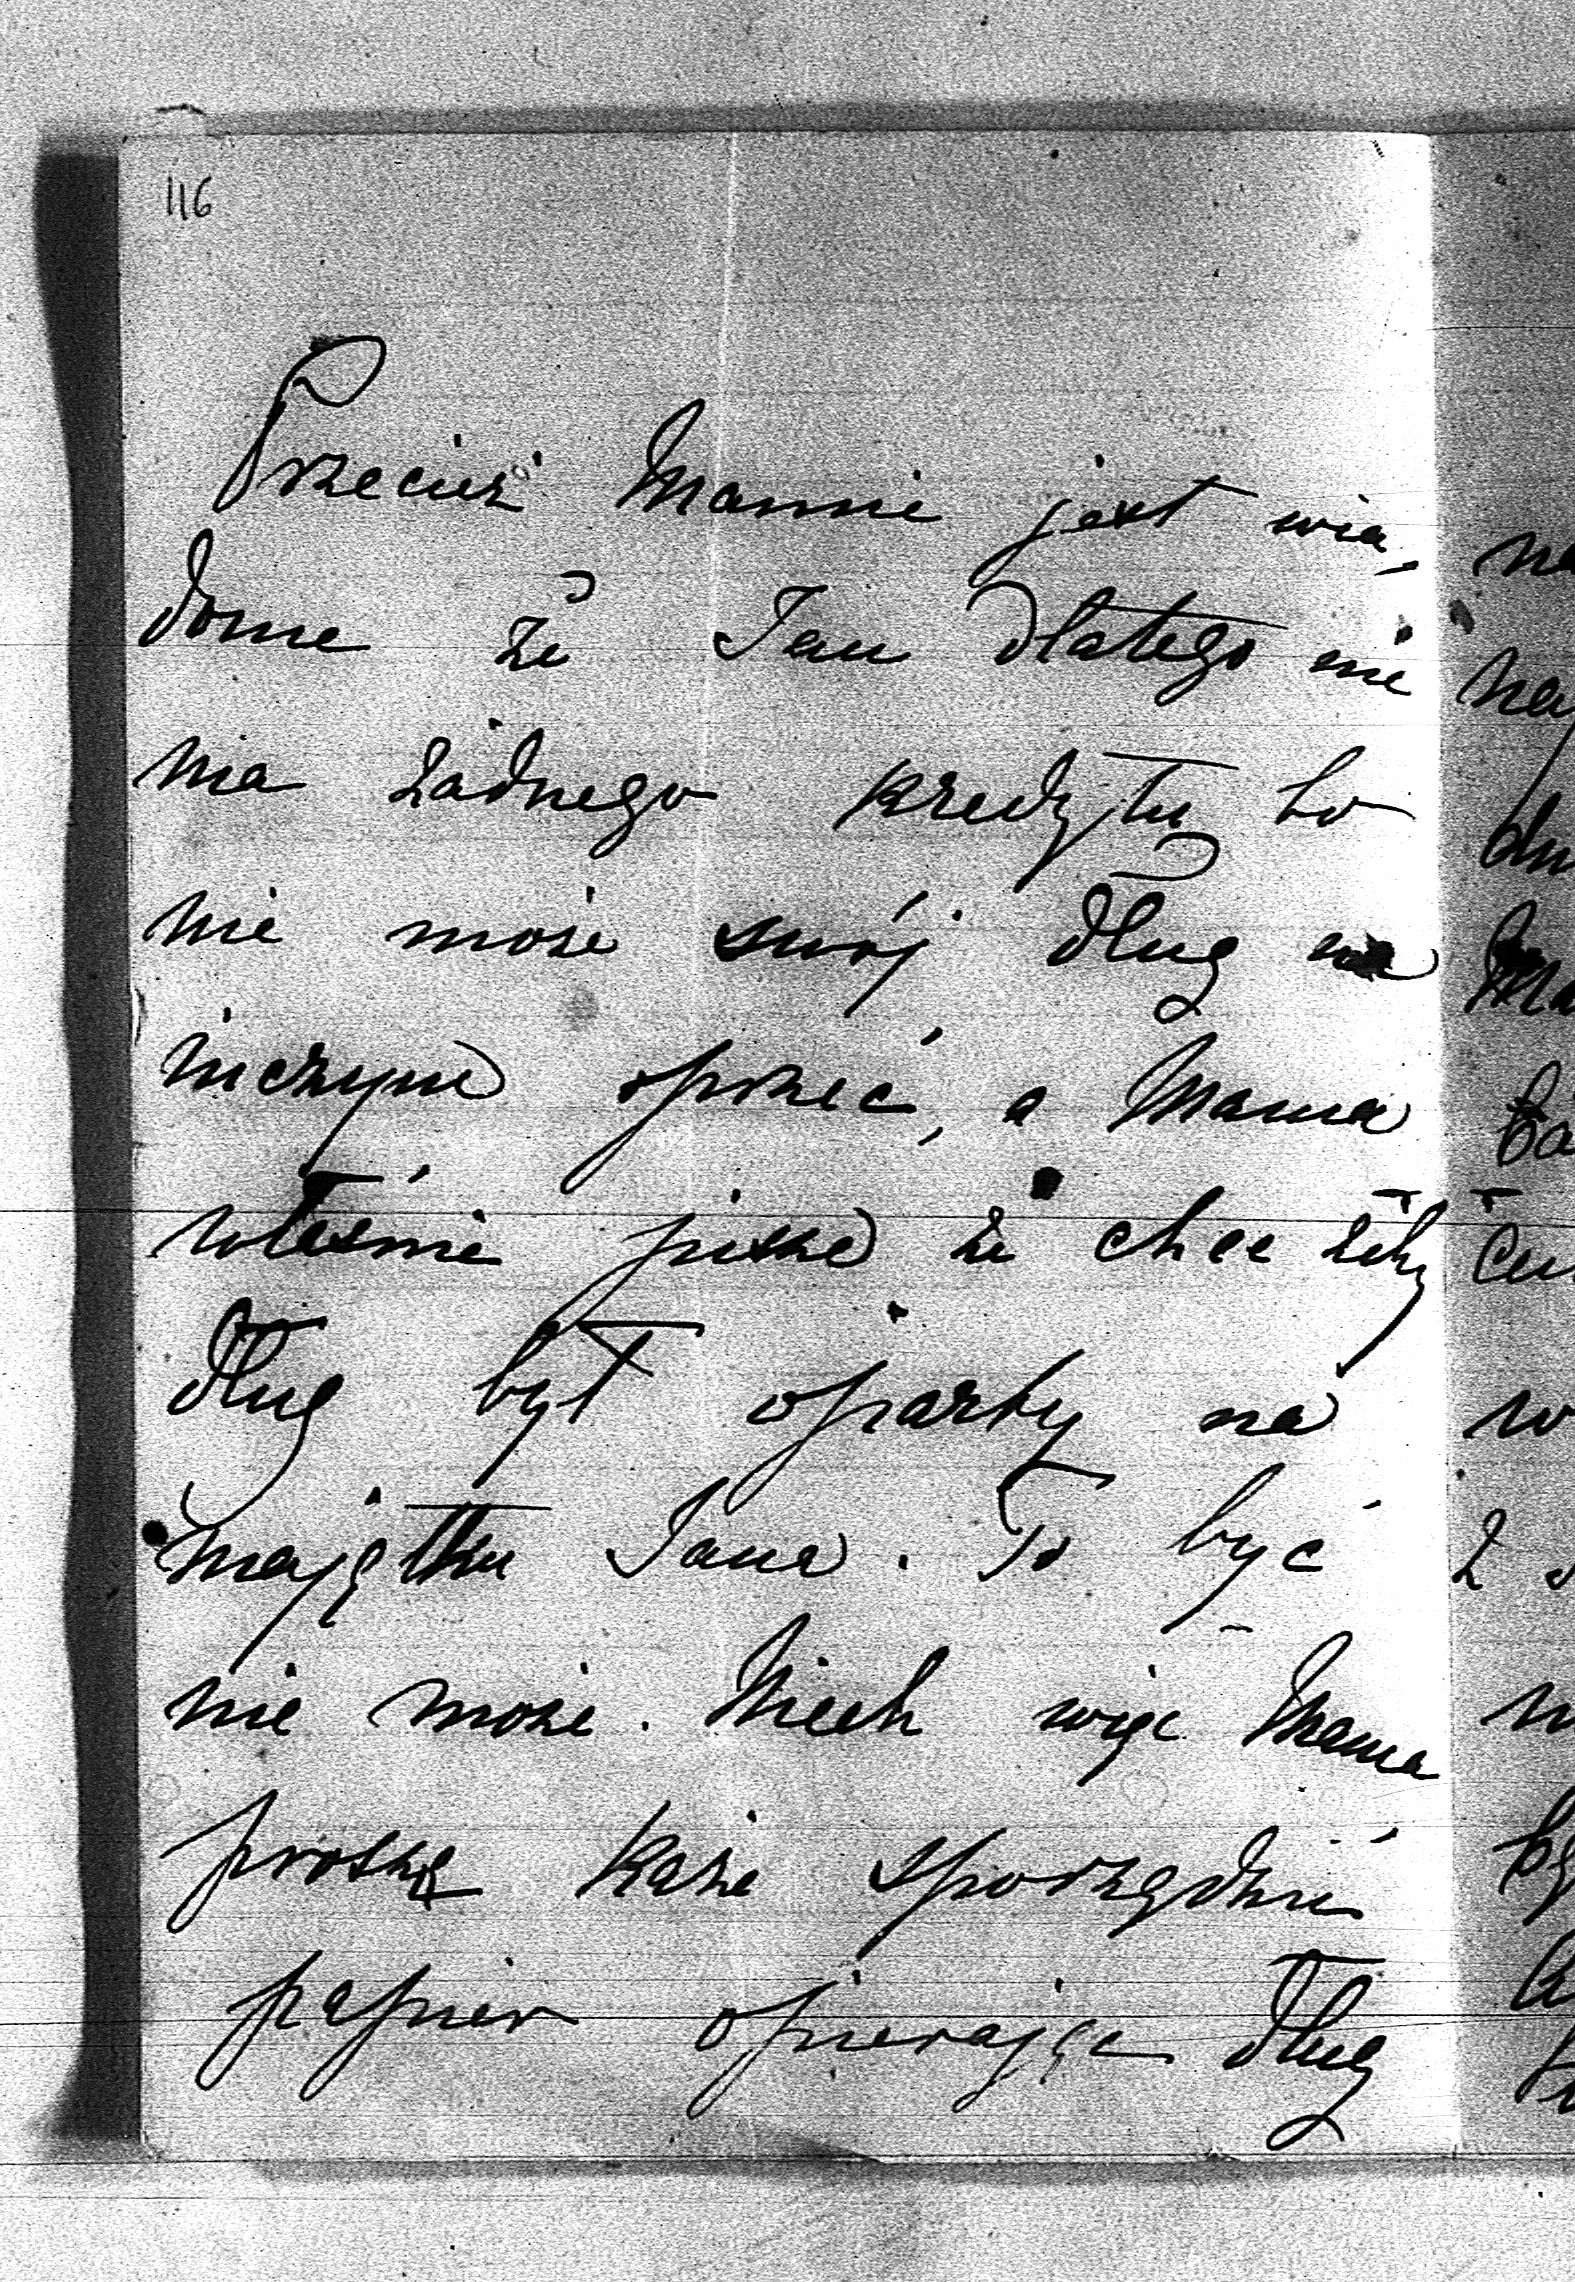 116
Przecież Mamie jest wia-
dome że Jan dlatego nie
ma żadnego kredytu bo
nie może swój dług na
niczym oprzeć, a Mama
właśnie pisze że chce żeby
dług był oparty na
majątku Jana. To być
nie może. Niech więc Mama
proszę każe sporządzić
papier opierając dług